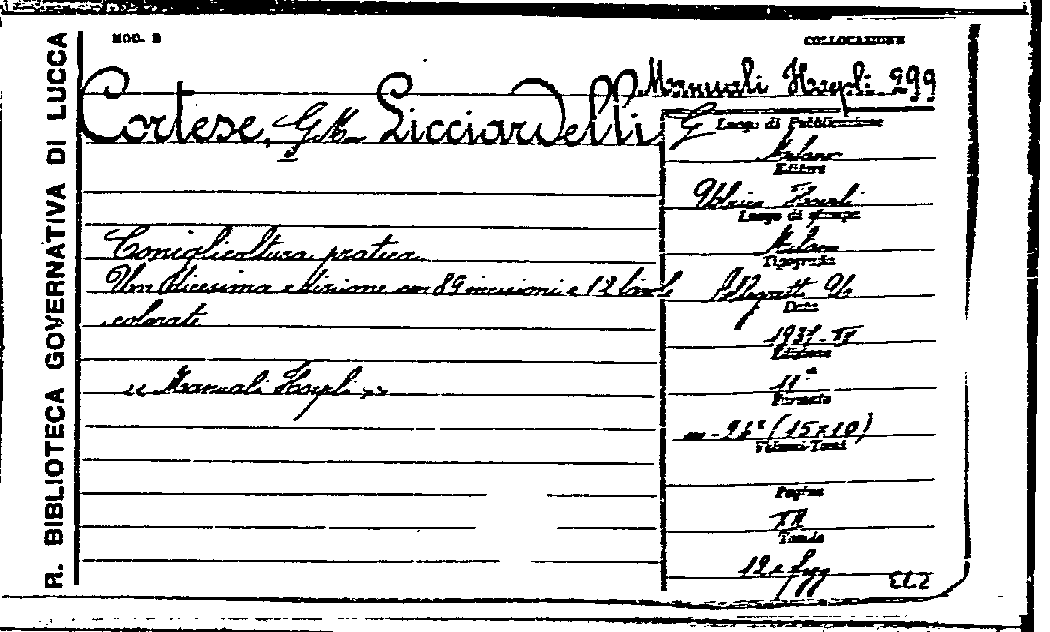 R. BIBLIOTECA GOVERNATIVA DI LUCCA
MOD. B
COLLOCAZIONE
Manuali Hoepli 299
Cortese, G.M. Licciardelli G
Luogo di Pubblicazione
Milano
Editore
Ulrico Hoepli
Luogo di stampa
Milano
Tipografia
Coniglicoltura pratica
Undicesima edizione con 89 incisioni e 12 tavole
colorate
Data
1931
Edizione
11ª
"Manuali Hoepli"
Formato
(15x10)
Volumi-Tomi
Pagine
Tavole
12 e figg